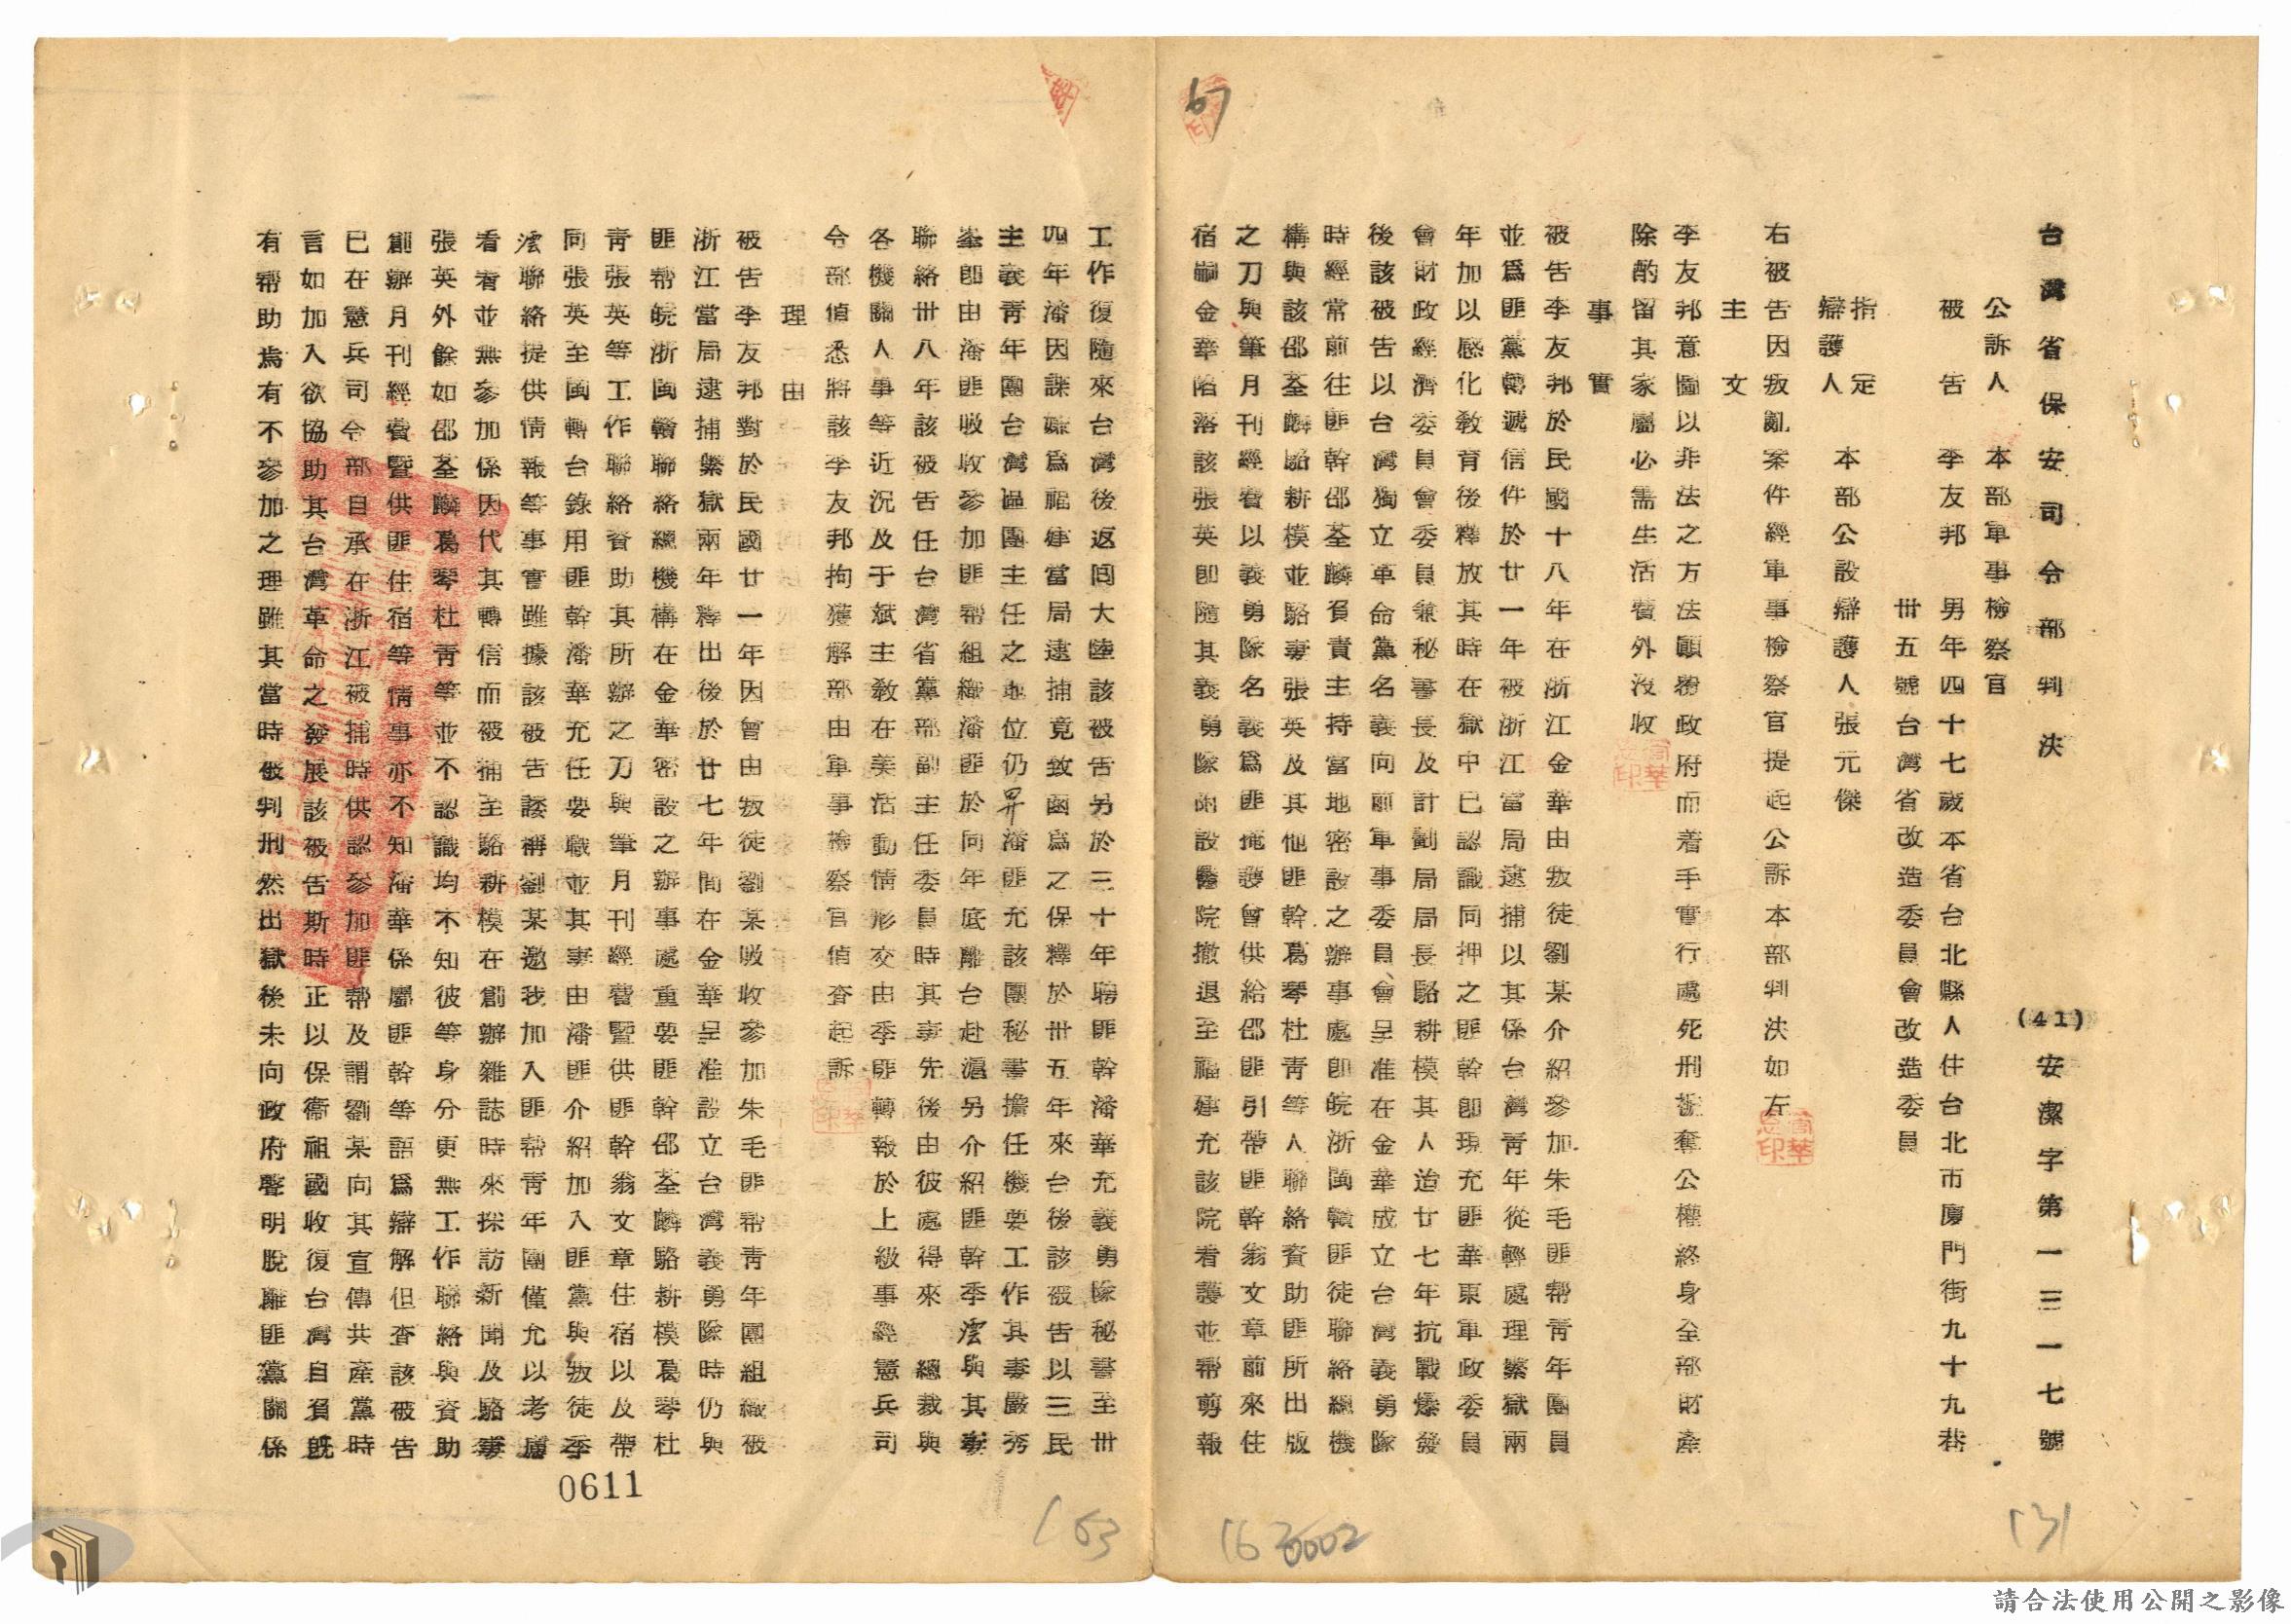 台灣省保安司令部判決 (41)安潔字第一三一七號
公訴人 本部軍事檢察官
被告 李友邦 男年四十七歲本省台北縣人住台北市廈門街九十九巷
卅五號台灣省改造委員會改造委員
指定
辯護人 本部公設辯護人張元傑
右被告因叛亂案件經軍事檢察官提起公訴本部判決如左
主文
李友邦意圖以非法之方法顛覆政府而着手實行處死刑褫奪公權終身全部財產
除酌留其家屬必需生活費外沒收
事實
被告李友邦於民國十八年在浙江金華由叛徒劉某介紹參加朱毛匪帮青年團員
並為匪黨轉遞信件於廿一年被浙江當局逮捕以其係台灣青年從輕處理繫獄兩
年加以感化教育後釋放其時在獄中已認識同押之匪幹即現充匪華東軍政委員
會財政經濟委員會委員兼秘書長及計劃局局長駱耕模其人迨廿七年抗戰爆發
後該被告以台灣獨立革命黨名義向前軍事委員會呈准在金華成立台灣義勇隊
時經常前往匪幹邵荃麟負責主持當地密設之辦事處即皖浙閩贛匪徒聯絡總機
構與該邵荃麟駱耕模並駱妻張英及其他匪幹葛琴杜青等人聯絡資助匪所出版
之刀與筆月刊經費以義勇隊名義為匪掩護曾供給邵匪引帶匪幹翁文章前來住
宿嗣金華陷落該張英即隨其義勇隊附設醫院撤退至福建充該院看護並帮剪報
工作復隨來台灣後返回大陸該被告另於三十年聘匪幹潘華充義勇隊秘書至卅
四年潘因諜嫌為福建當局逮捕竟致函為之保釋於卅五年來台後該被告以三民
主義青年團台灣區團主任之地位仍昇潘匪充該團秘書擔任機要工作其妻嚴秀
峯即由潘匪吸收參加匪帮組織潘匪於同年底離台赴滬另介紹匪幹季澐與其妻
聯絡卅八年該被告任台灣省黨部副主任委員時其妻先後由彼處得來 總裁與
各機關人事等近況及于斌主教在美活動情形交由季匪轉報於上級事經憲兵司
令部偵悉將該李友邦拘獲解部由軍事檢察官偵查起訴
理由
被告李友邦對於民國廿一年因曾由叛徒劉某吸收參加朱毛匪帮青年團組織被
浙江當局逮捕繫獄兩年釋出後於廿七年間在金華呈准設立台灣義勇隊時仍與
匪帮皖浙閩贛聯絡總機構在金華密設之辦事處重要匪幹邵荃麟駱耕模葛琴杜
青張英等工作聯絡資助其所辦之刀與筆月刊經費暨供匪幹翁文章住宿以及帶
同張英至閩轉台錄用匪幹潘華充任要職並其妻由潘匪介紹加入匪黨與叛徒季
澐聯絡提供情報等事實雖據該被告諉稱劉某邀我加入匪帮青年團僅允以考慮
看看並無參加係因代其轉信而被捕至駱耕模在創辦雜誌時來採訪新聞及駱妻
張英外餘如邵荃麟葛琴杜青等並不認識均不知彼等身分更無工作聯絡與資助
創辦月刊經費暨供匪住宿等情事亦不知潘華係屬匪幹等語為辯解但查該被告
已在憲兵司令部自承在浙江被捕時供認參加匪帮及謂劉某向其宣傳共產黨時
言如加入欲協助其台灣革命之發展該被告斯時正以保衞祖國收復台灣自負既
有帮助焉有不參加之理雖其當時被判刑然出獄後未向政府聲明脫離匪黨關係
0611
163
163
0002
131
67
請合法使用公開之影像